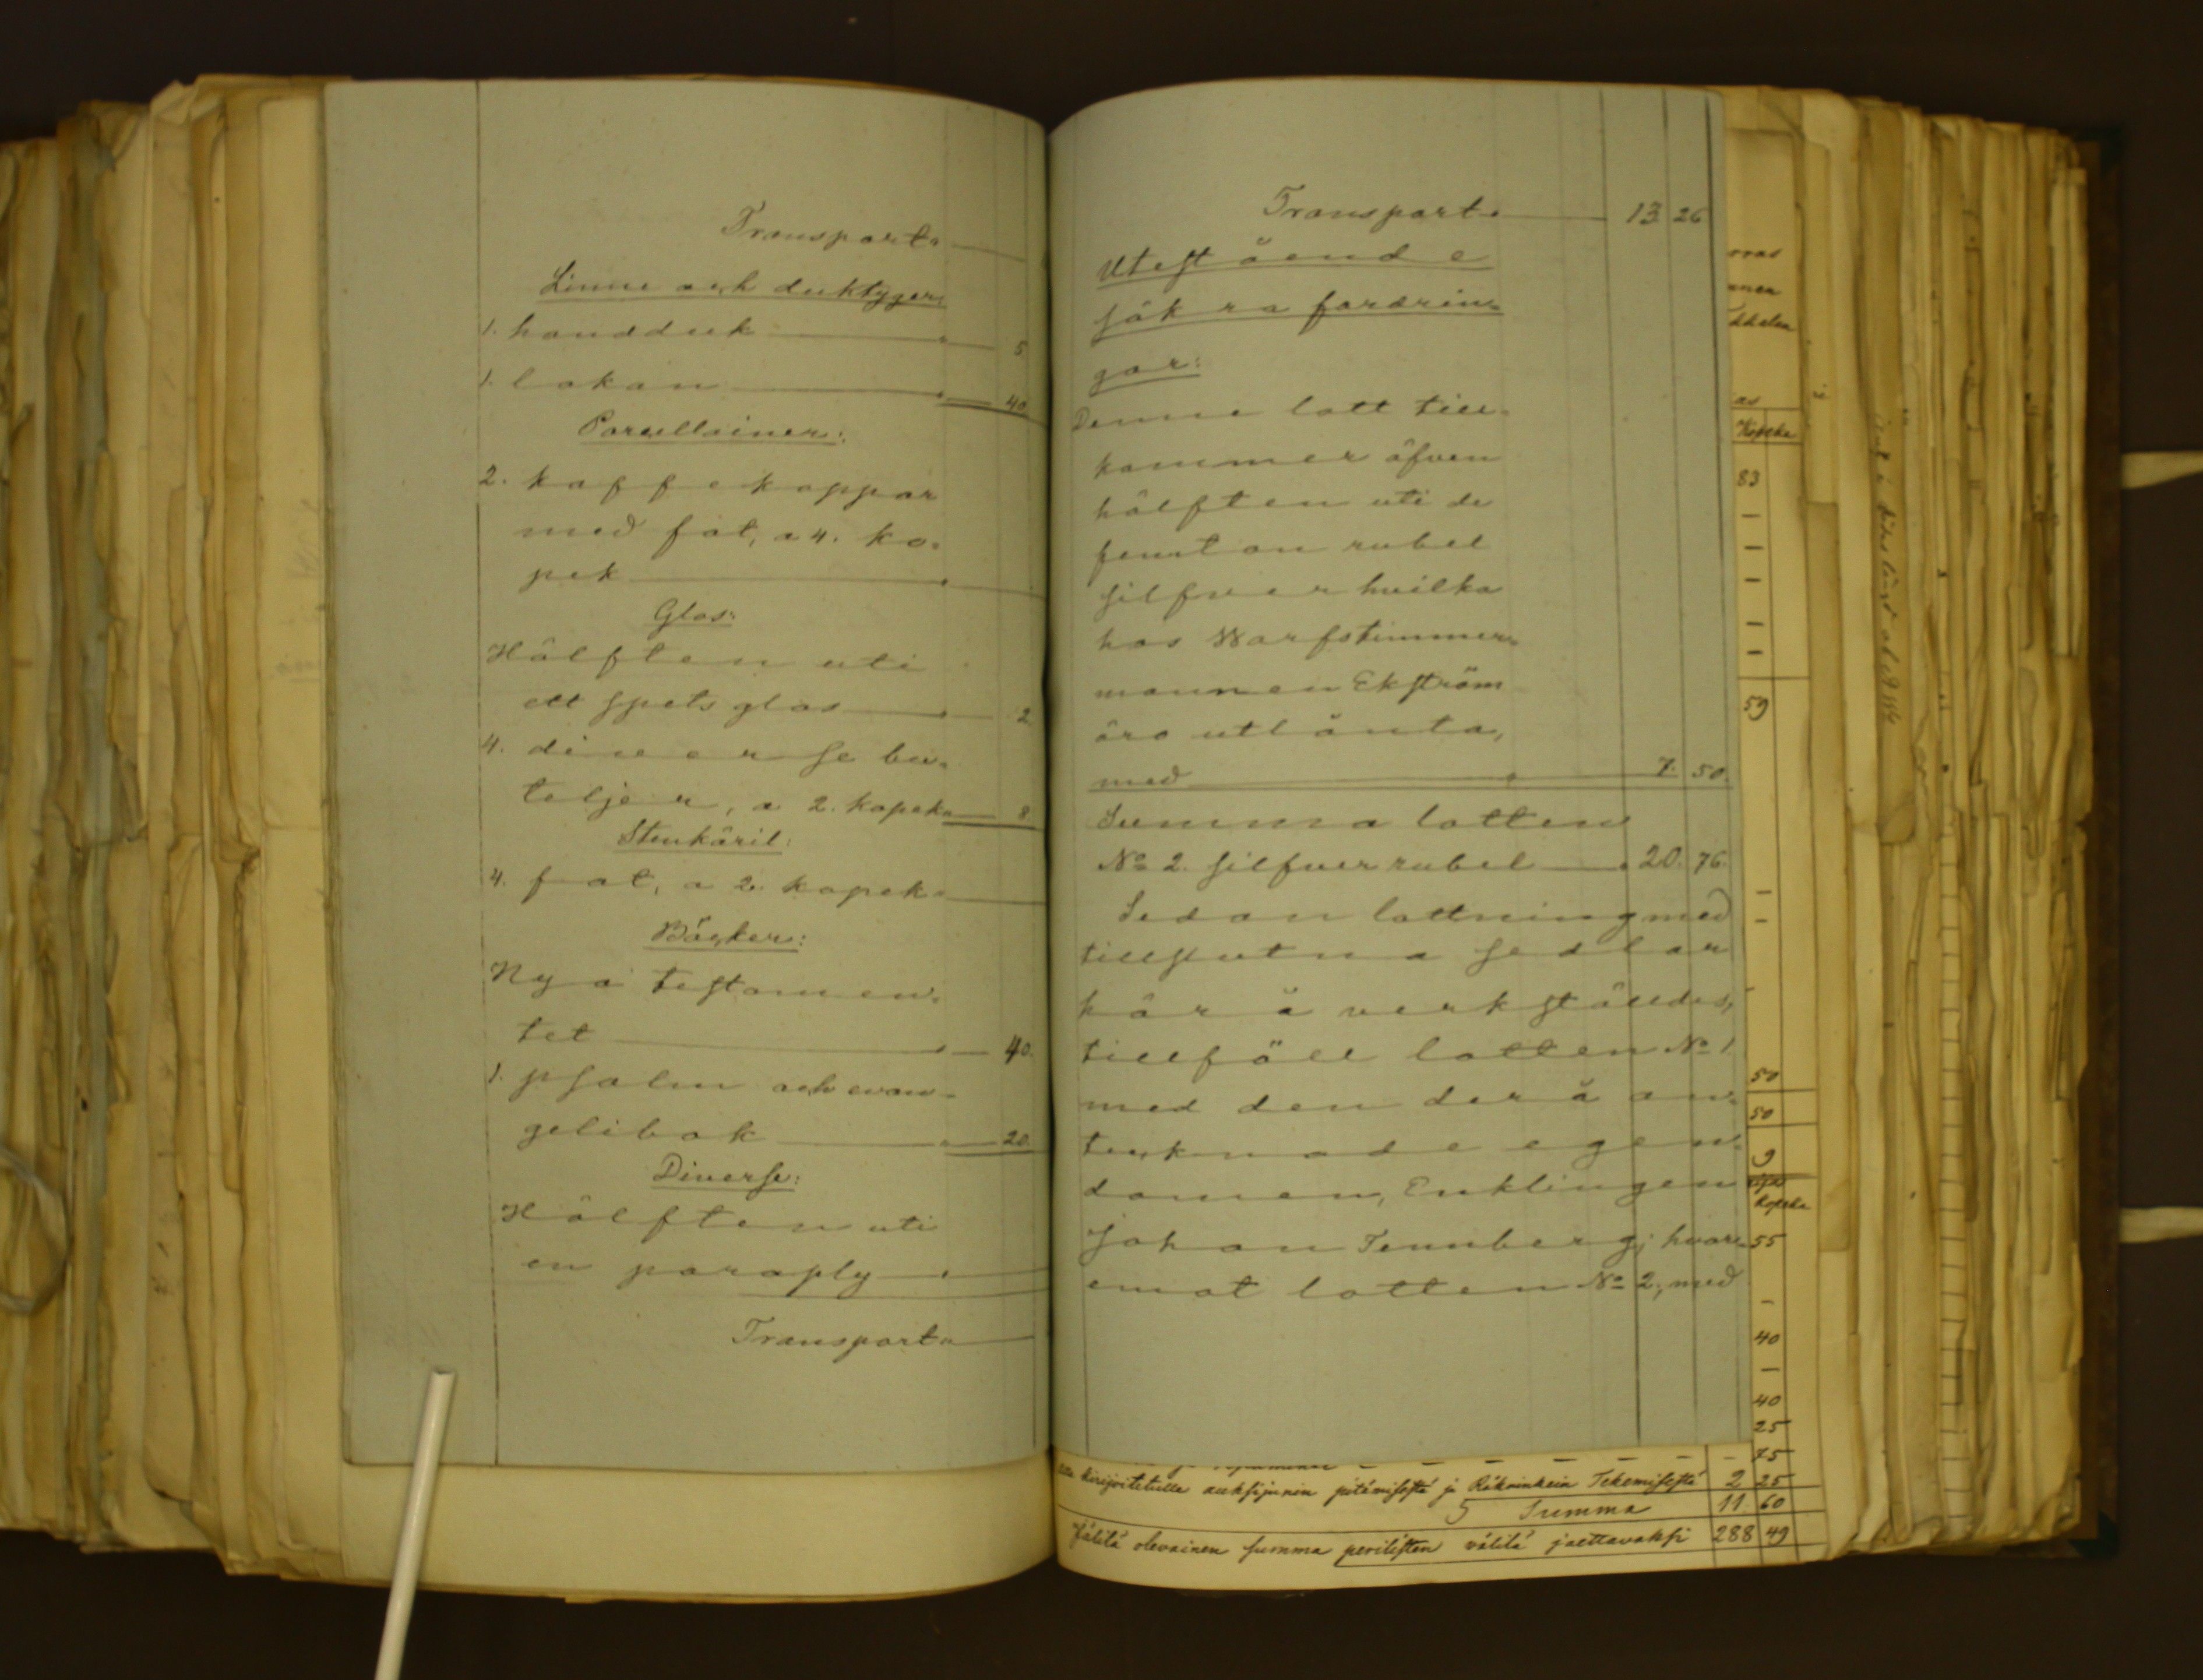 Transport.
Linne och duktyger:
1. handduk 5
1. lakan 40
Porcellainer:
2. kaffekoppar
med fat, a 4. ko-
pek
Glas:
Hälften uti
ett spetsglas 2
4. diverse bu-
teljer, a 2. kopek 8
Stenkäril:
4. fat, a 2. kopek
Böcker:
Nya testamen-
tet 40.
1. psalm och evan-
gelibok 20.
Diverse:
Hälften uti
en paraply
Transport
Transport 13 26
Utestående
säkra fordrin-
gar:
Denne lott till-
kommer äfven
hälften uti de
femton rubel
silfver hvilka
hos Warfstimmer-
mannen Ekström
äro utlånta,
med 7. 50.
Summa lotten
No 2. silfver rubel 20. 76.
Sedan lottning med
tillslutna sedlar
härå verkställdes,
tillföll lotten No 1
med den derå an-
tecknade egen-
domen, Enklingen
Johan Tennberg; hvar-
emot lotten No 2, med
as
Kopeka
83
59
50
50
9
Kopeka
55
40
40
25
75
kirjoitetulle auksijunin pitämisestä ja Räkninkein Tekemisestä 2 25
5 Summa 11 60
Jälilä olevainen summa perilisten välilä jaettavaksi 288 49